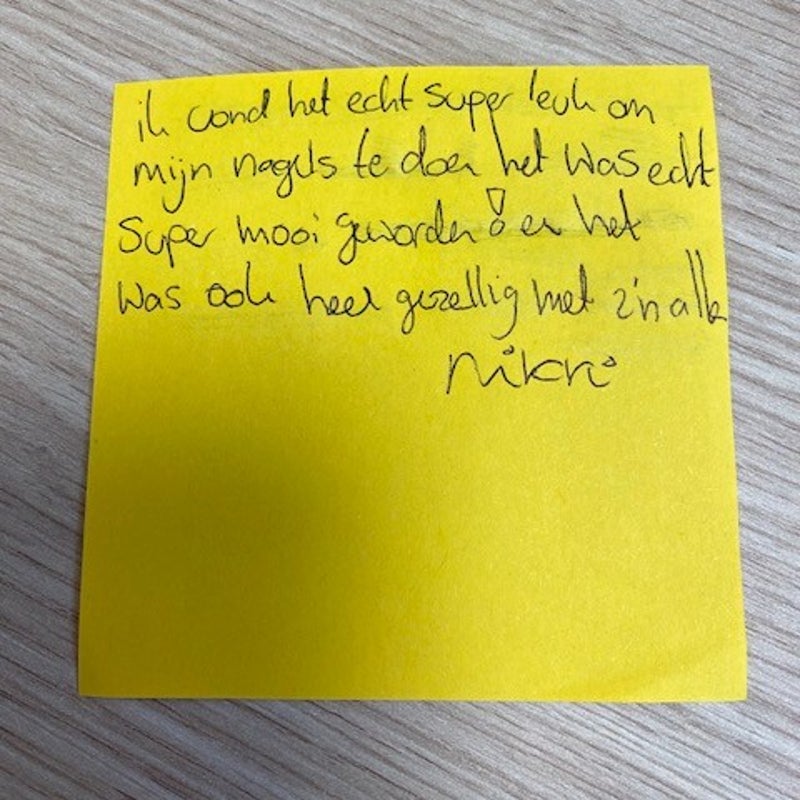 ik vond het echt super leuk om
mijn nagels te doen het was echt
super mooi geworden! en het
was ook heel gezellig met z'n alle